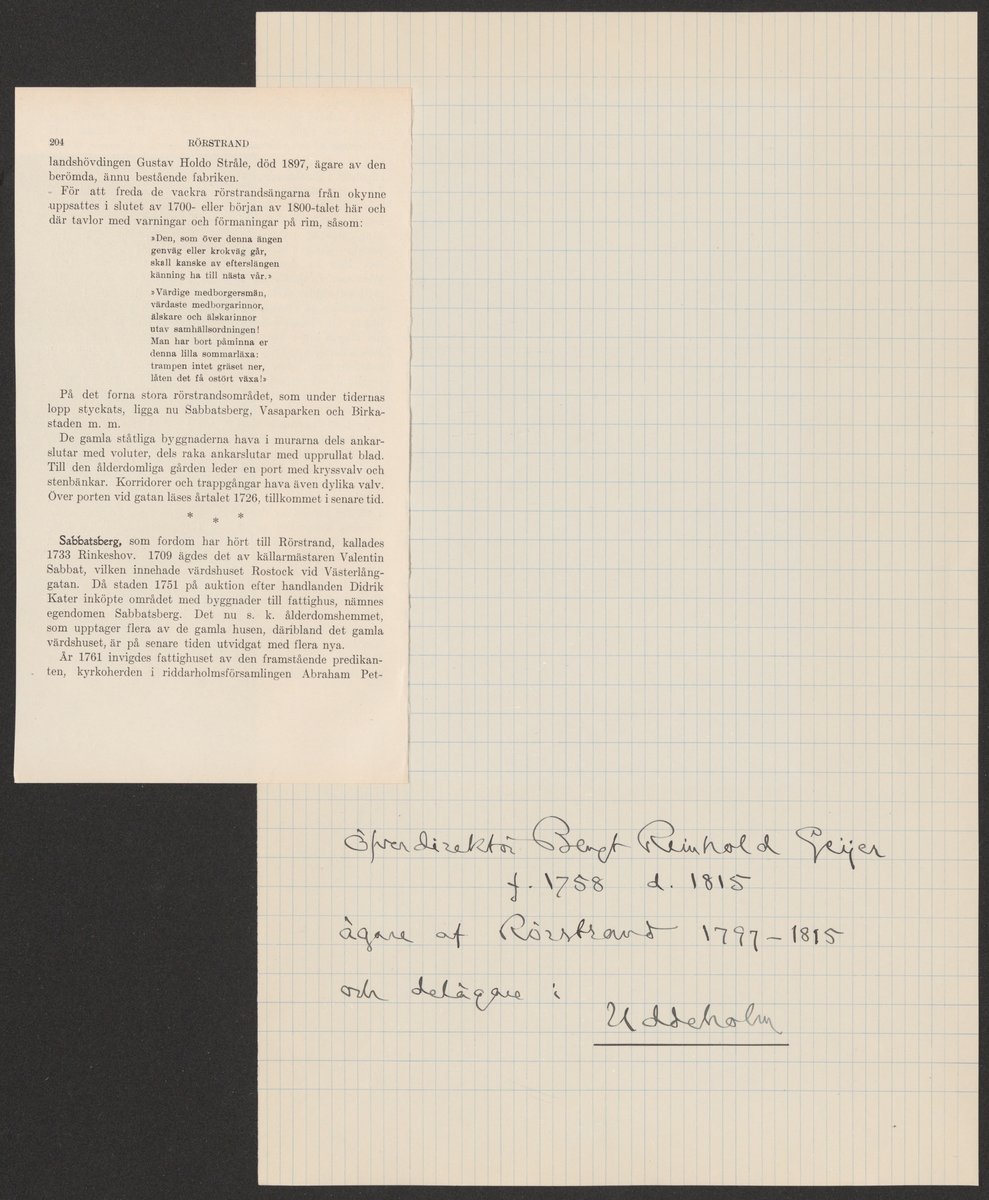 204 RÖRSTRAND
landshövdingen Gustav Holdo Stråle, död 1897, ägare av den
berömda, ännu bestående fabriken.
För att freda de vackra rörstrandsängarna från okynne
uppsattes i slutet av 1700- eller början av 1800-talet här och
där tavlor med varningar och förmaningar på rim, såsom:
»Den, som över denna ängen
genväg eller krokväg går,
skall kanske av efterslängen
känning ha till nästa vår.»
»Värdige medborgersmän,
värdaste medborgarinnor,
älskare och älskarinnor
utav samhällsordningen!
Man har bort påminna er
denna lilla sommarläxa:
trampen intet gräset ner,
låten det få ostört växa!»
På det forna stora rörstrandsområdet, som under tidernas
lopp styckats, ligga nu Sabbatsberg, Vasaparken och Birka-
staden m. m.
De gamla ståtliga byggnaderna hava i murarna dels ankar-
slutar med voluter, dels raka ankarslutar med upprullat blad.
Till den ålderdomliga gården leder en port med kryssvalv och
stenbänkar. Korridorer och trappgångar hava även dylika valv.
Över porten vid gatan läses årtalet 1726, tillkommet i senare tid.
* * *
Sabbatsberg, som fordom har hört till Rörstrand, kallades
1733 Rinkeshov. 1709 ägdes det av källarmästaren Valentin
Sabbat, vilken innehade värdshuset Rostock vid Västerlång-
gatan. Då staden 1751 på auktion efter handlanden Didrik
Kater inköpte området med byggnader till fattighus, nämnes
egendomen Sabbatsberg. Det nu s. k. ålderdomshemmet,
som upptager flera av de gamla husen, däribland det gamla
värdshuset, är på senare tiden utvidgat med flera nya.
År 1761 invigdes fattighuset av den framstående predikan-
ten, kyrkoherden i riddarholmsförsamlingen Abraham Pet-
öfverdirektör Bengt Reinhold Geijer
f. 1758 d. 1815
ägare af Rörstrand 1797-1815
och delägare i
Uddeholm